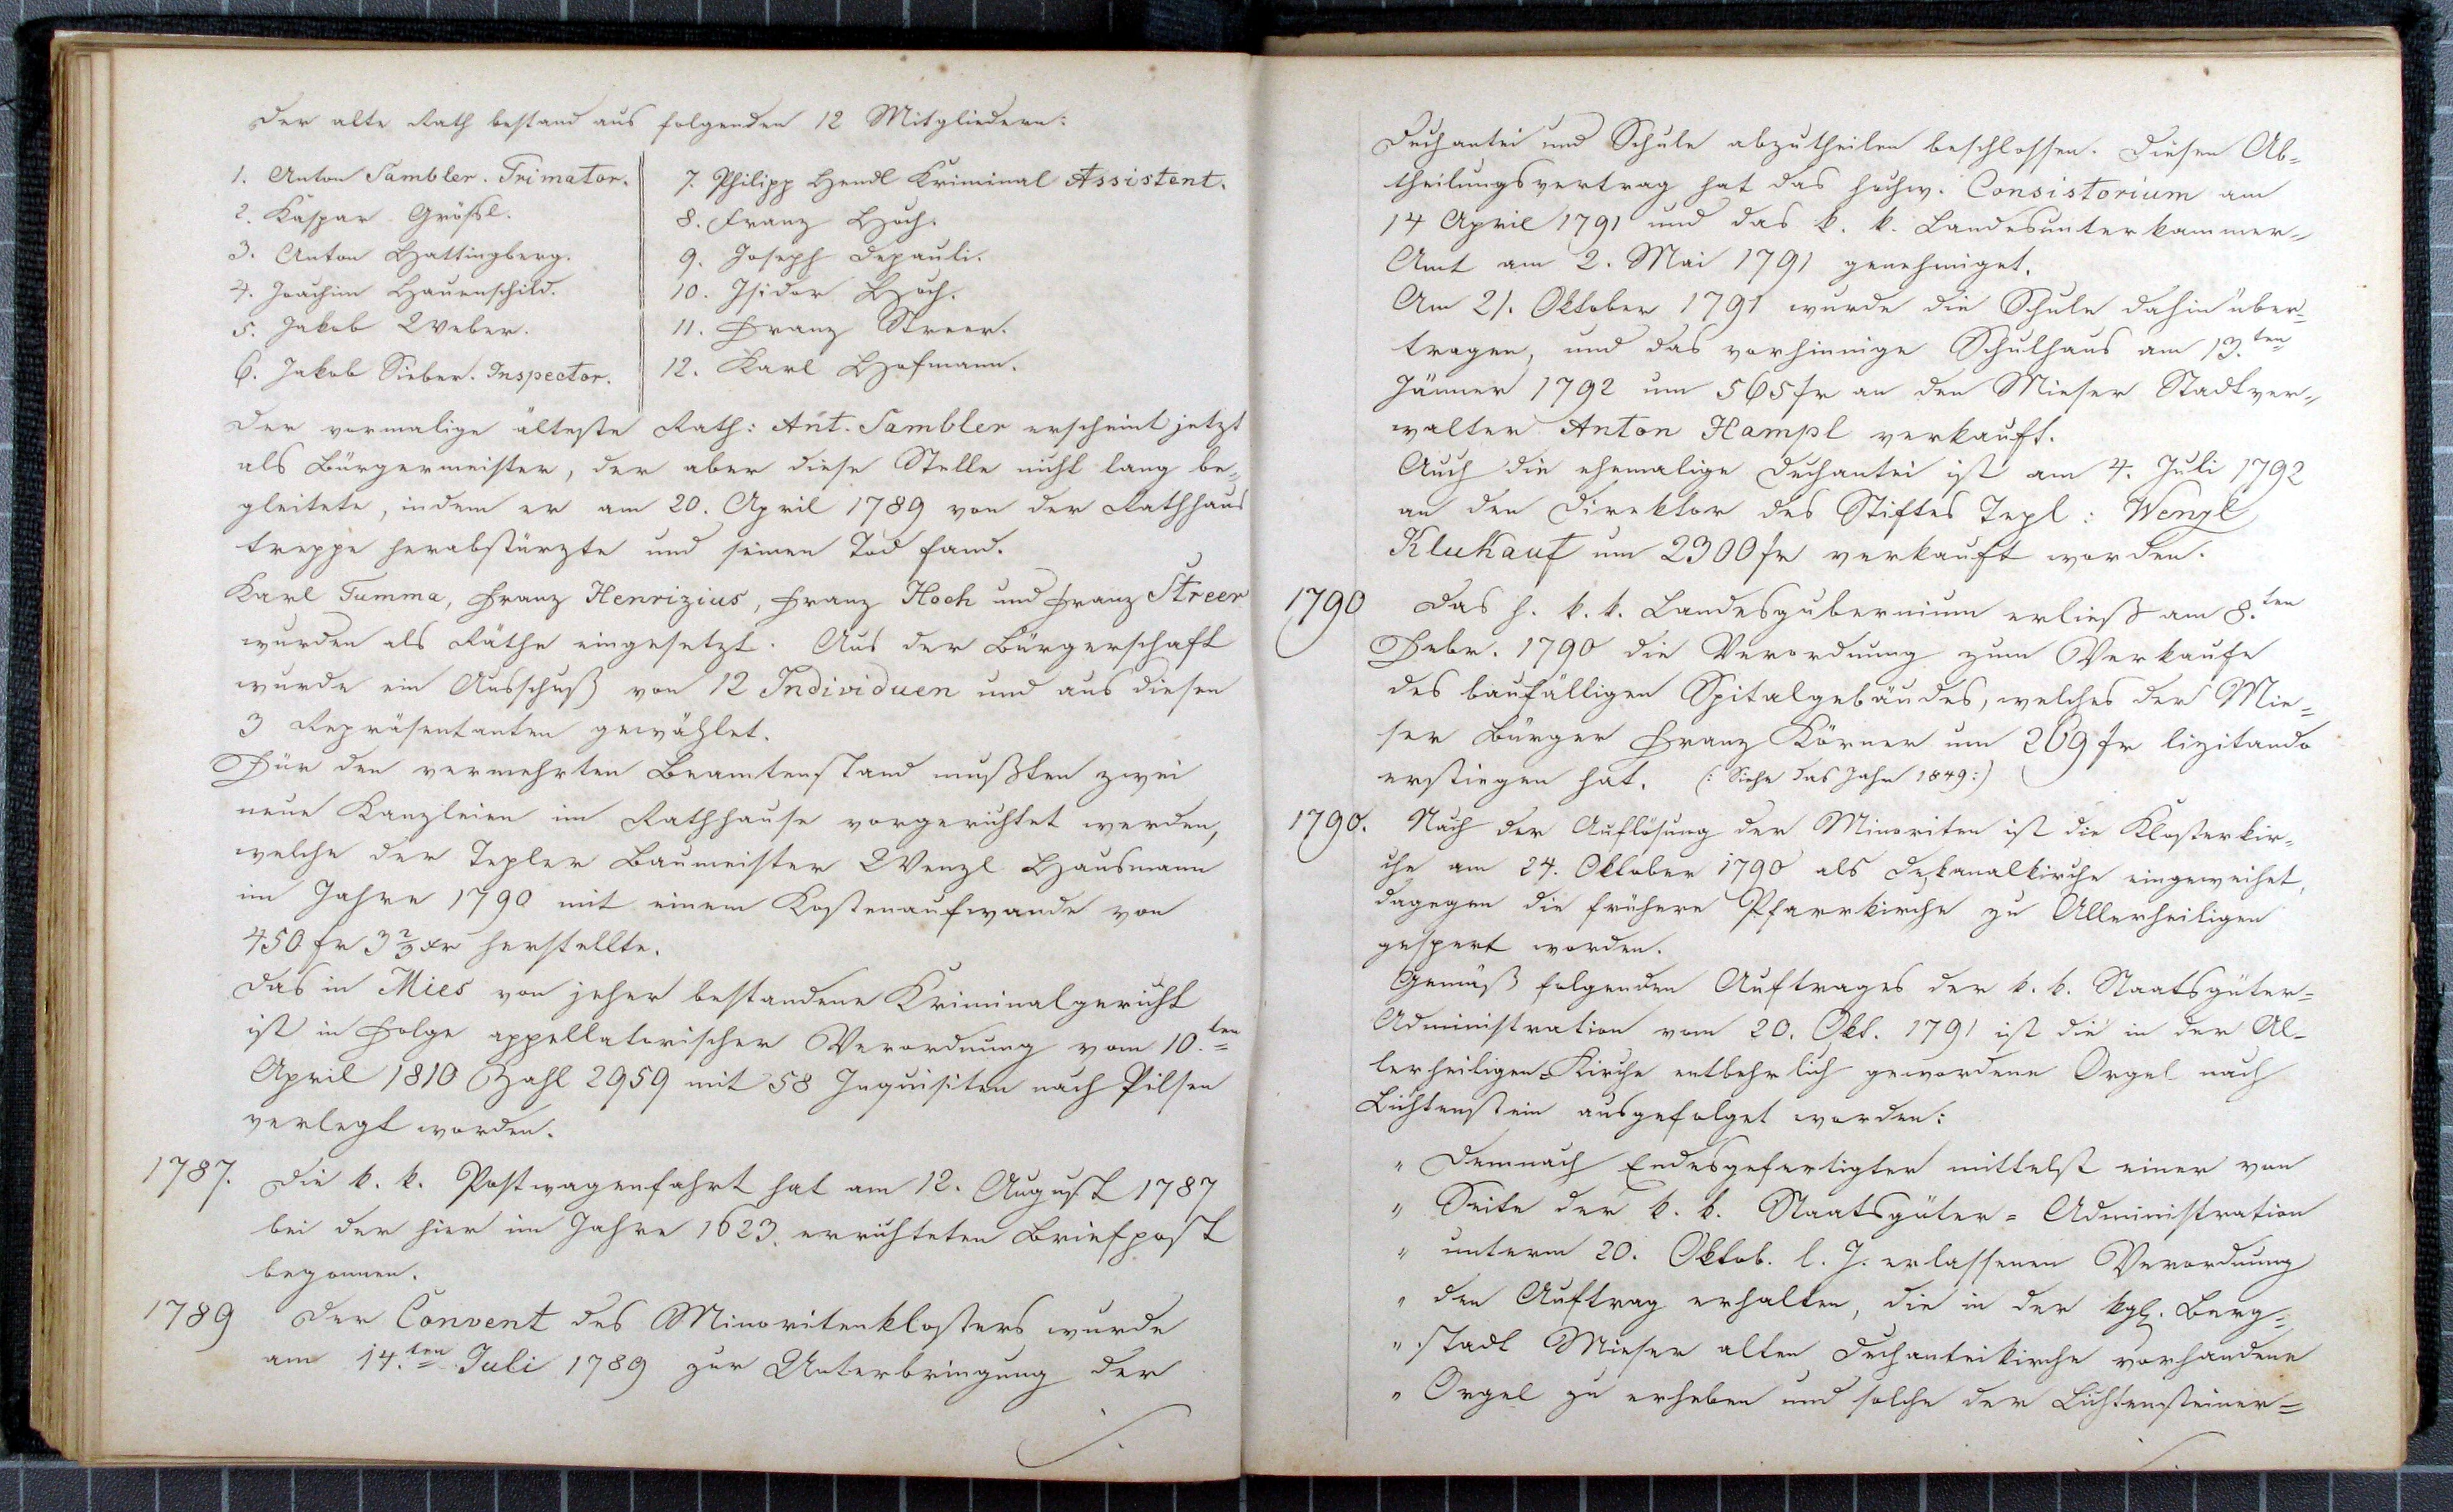 Der alte Rath bestand aus folgenden 12 Mitgliedern:
1. Anton Sambler. Primator.
2. Kaspar Größl.
3. Anton Hattingberg.
4. Joachim Hauenschild.
5. Jakob Weber.
6. Jakob Sieber. Inspector.
7. Philipp Hendl Kriminal Assistent.
8. Franz Hoch.
9. Joseph Depauli.
10. Isidor Hoch.
11. Franz Streer.
12. Karl Hofmann.
Der vormalige älteste Rath: Ant. Sambler erscheint jetzt
als Bürgermeister, der aber diese Stelle nicht lang be=
gleitete, indem er am 20. April 1789 von der Rathhaus
treppe herabstürzte und seinen Tod fand.
Karl Tumma, Franz Henrizius, Franz Hoch und Franz Streer
wurden als Räthe eingesetzt. Aus der Bürgerschaft
wurde ein Ausschuß von 12 Individuen und aus diesen
3 Repräsentanten gewählet.
Für den vermehrten Beamtenstand mußten zwei
neue Kanzleien im Rathhause vorgerichtet werden,
welche der Tepler Baumeister Wenzl Hausmann
im Jahre 1790 mit einem Kostenaufwande von
450 fr 3 2/3 xr herstellte.
Das in Mies von jeher bestandene Kriminalgericht
ist in Folge appellatorischer Verordnung vom 10.ten
April 1810 Zahl 2959 mit 58 Inquisiten nach Pilsen
verlegt worden.
1787. Die k. k. Postwagenfahrt hat am 12. August 1787
bei der hier im Jahre 1623 errichteten Briefpost
begonnen.
1789 Der Convent des Minoritenklosters wurde
am 14.ten Juli 1789 zur Unterbringung der
Dechantei und Schule abzutheilen beschlossen. Diesen Ab=
theilungsvertrag hat das hochw. Consistorium am
14 April 1791 und das k. k. Landesunterkammer=
Amt am 2. Mai 1791 genehmiget.
Am 21. Oktober 1791 wurde die Schule dahin über=
tragen, und das vorhinnige Schulhaus am 13.ten
Jänner 1792 um 565 fr an den Mieser Stadtver=
walter Anton Hampl verkauft.
Auch die ehemalige Dechantei ist am 4. Juli 1792
an den Direktor des Stiftes Tepl: Wenzl
Klukauf um 2300 fr verkauft worden.
1790 Das h. k. k. Landesgubernium erließ am 8.ten
Febr. 1790 die Verordnung zum Verkaufe
des baufälligen Spitalgebäudes, welches der Mie=
ser Bürger Franz Körner um 269 fr lizitando
erstiegen hat. (: Siehe das Jahr 1849:)
1790. Nach der Auflösung der Minoriten ist die Klosterkir=
che am 24. Oktober 1790 als Dekanalkirche eingeweihet,
dagegen die frühere Pfarrkirche zu Allerheiligen
gespert worden.
Gemäß folgenden Auftrages der k. k. Staatsgüter=
Administration vom 20. Okt. 1791 ist die in der Al=
lerheiligen=Kirche entbehrlich gewordene Orgel nach
Lichtenstein ausgefolget worden:
" Demnach Endesgefertigter mittelst einer von
" Seite der k. k. Staatsgüter=Administration
" unterm 20. Oktob. l. J. erlassenen Verordnung
" den Auftrag erhalten, die in der kgl. Berg=
" stadt Mieser alten Dechanteikirche vorhandene
" Orgel zu erheben und solche der Lichtensteiner=